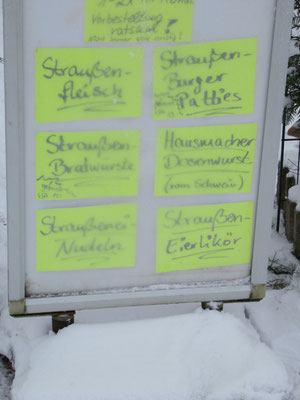 Vorbestellung
ratsam!
Straußen-
fleisch
Straußen-
Burger
Patties
Straußen-
Bratwurst
Hausmacher
Dosenwurst
(vom Schwein)
Straußenei-
Nudeln
Straußen-
Eierlikör